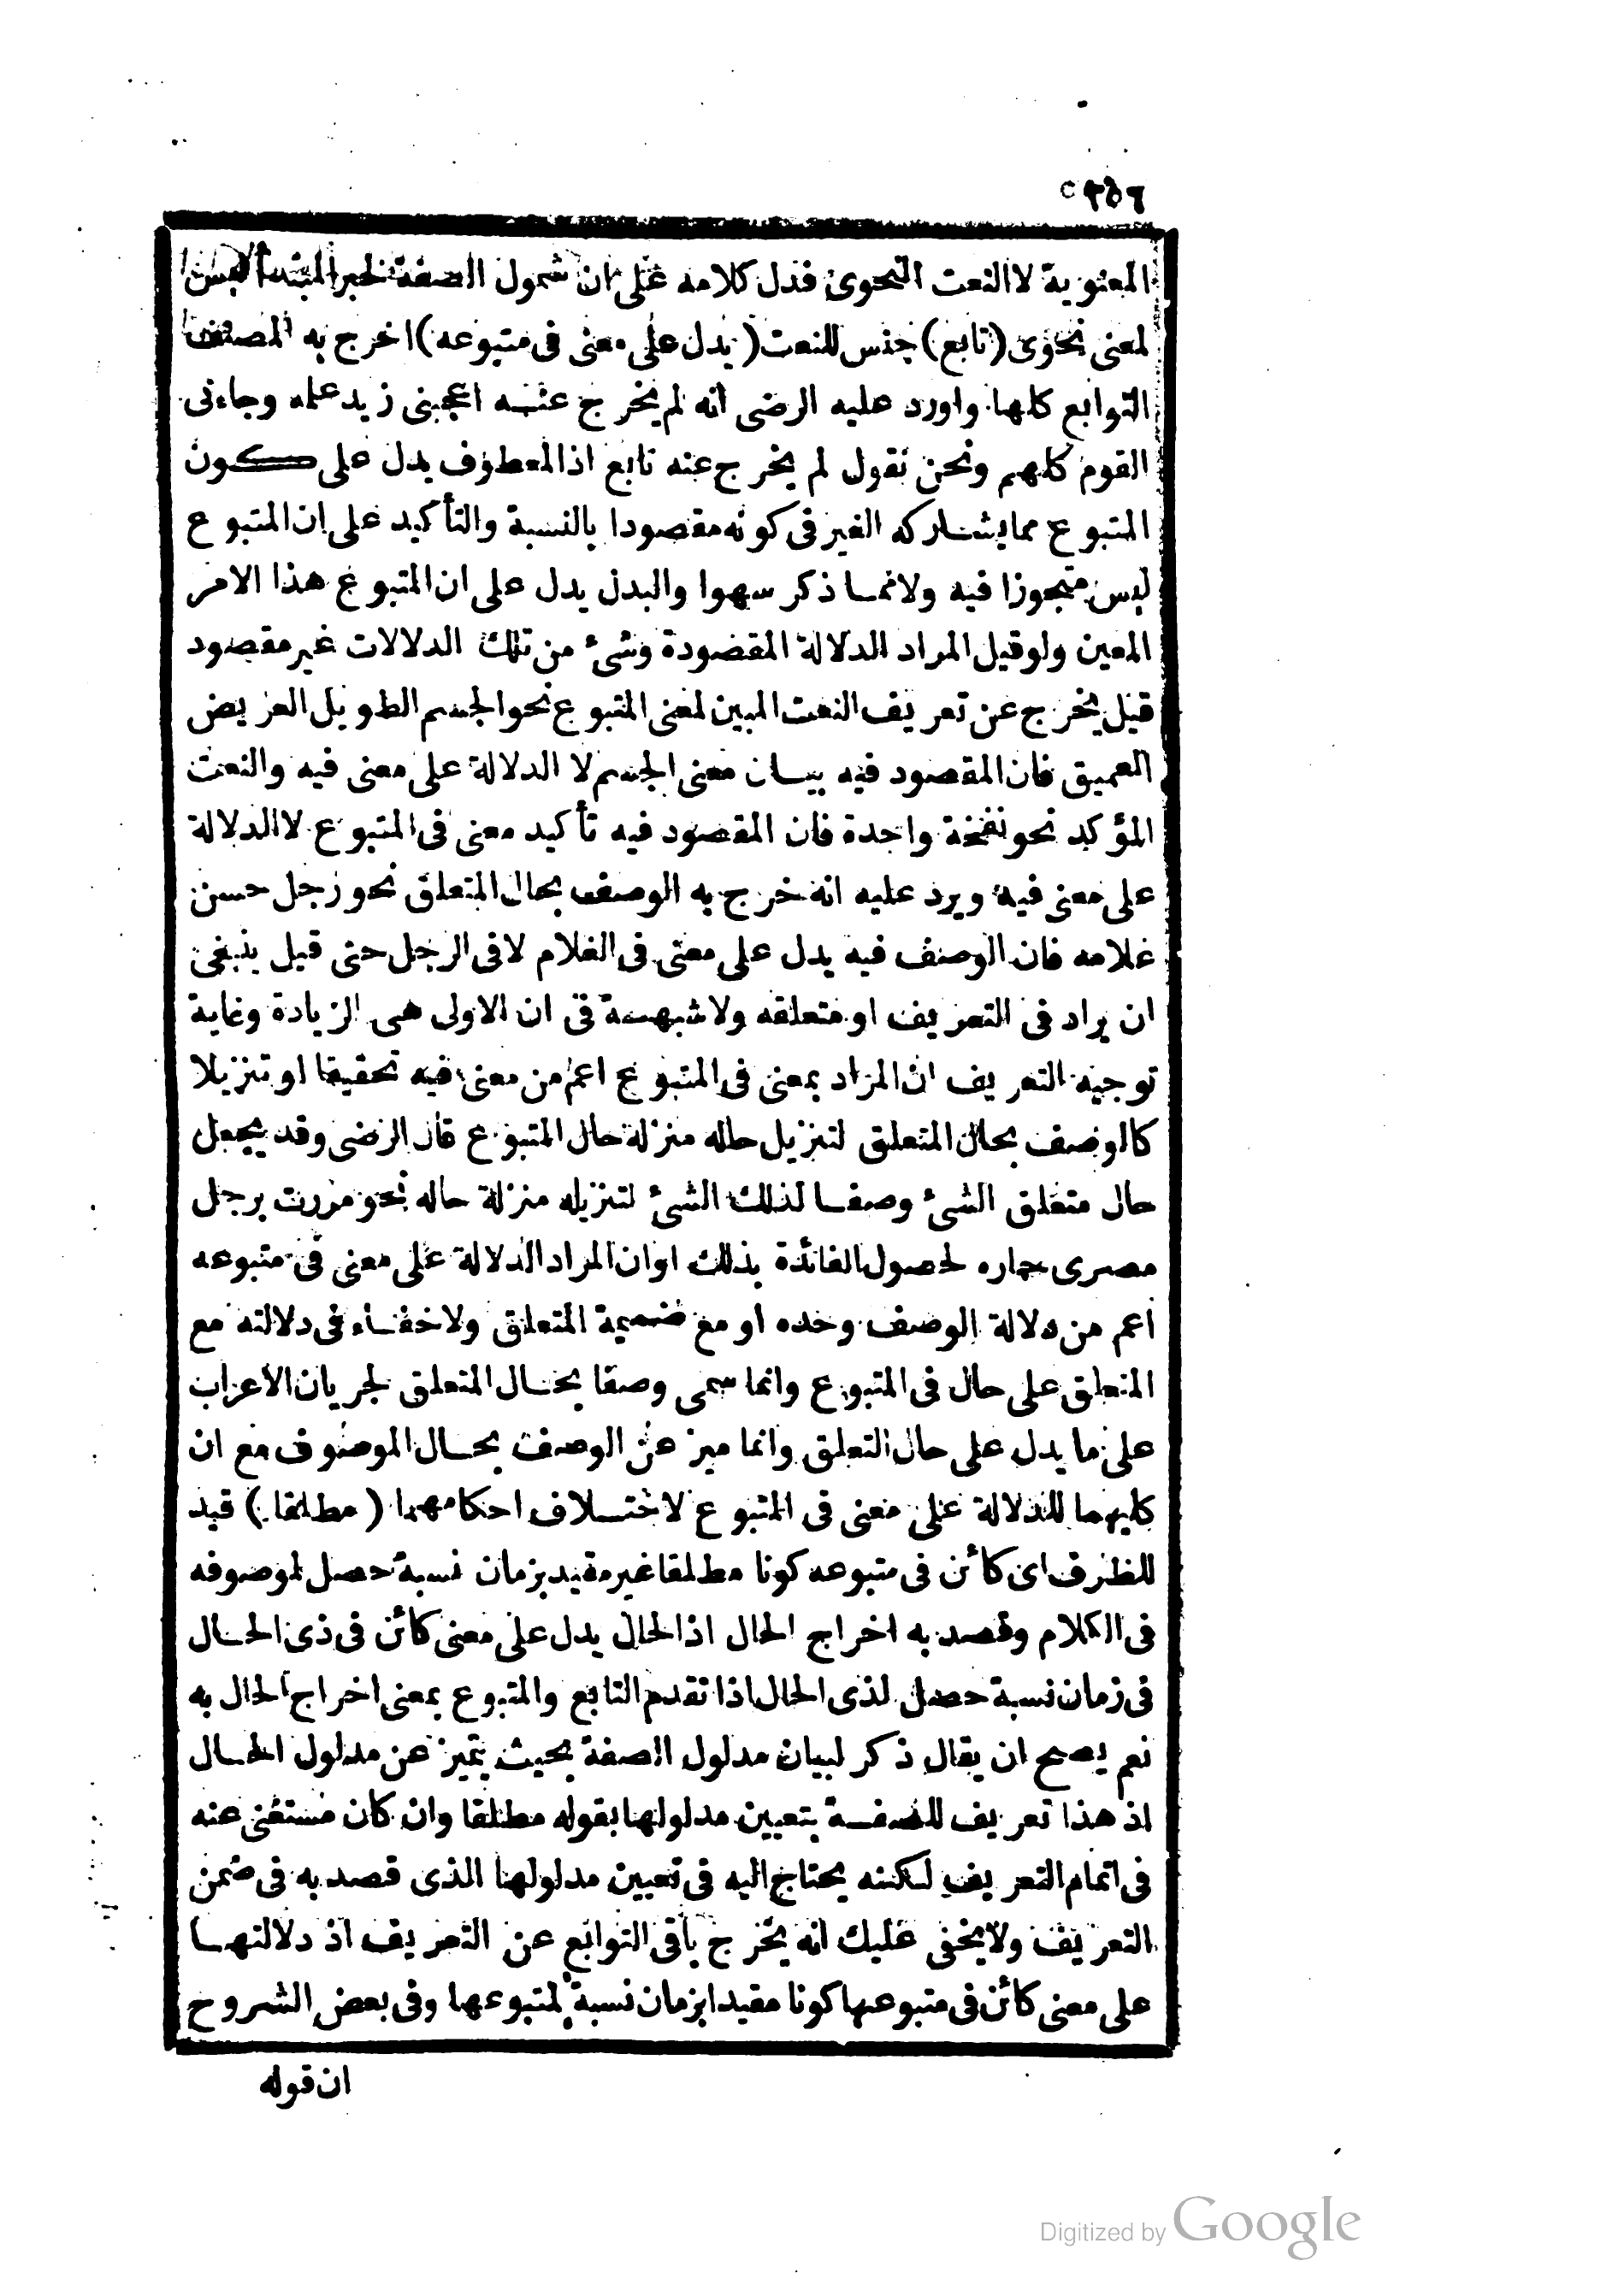 المعنوية لا النعت النحوى فدل كلامه على ان شمول الصفة لخبر المبتدأ ليس
لمعنى نحوى (تابع) جنس للنعت (يدل على معنى فى متبوعه) اخرج به المصنف
التوابع كلها واورد عليه الرضى انه لم يخرج عنه اعجبنى زيد علمه وجاءنى
القوم كلهم ونحن نقول لم يخرج عنه تابع اذ المعطوف يدل على كون
المتبوع مما يشاركه الغير فى كونه مقصودا بالنسبة والتأكيد على ان المتبوع
ليس متجوزا فيه ولا مما ذكر سهوا والبدل يدل على ان المتبوع هذا الامر
المعين ولو قيل المراد الدلالة المقصودة وشئ من تلك الدلالات غير مقصود
قيل يخرج عن تعريف النعت المبين لمعنى المتبوع نحو الجسم الطويل العريض
العميق فان المقصود فيه بيان معنى الجسم لا الدلالة على معنى فيه والنعت
المؤكد نحو نفخة واحدة فان المقصود فيه تأكيد معنى فى المتبوع لا الدلالة
على معنى فيه ويرد عليه انه خرج به الوصف بحال المتعلق نحو رجل حسن
غلامه فان الوصف فيه يدل على معنى فى الغلام لا فى الرجل حتى قيل ينبغى
ان يراد فى التعريف او متعلقه ولا شبهة فى ان الاولى هى الزيادة وغاية
توجيه التعريف ان المراد بمعنى فى المتبوع اعم من معنى فيه تحقيقا او تنزيلا
كالوصف بحال المتعلق لتنزيل حاله منزلة حال المتبوع قال الرضى وقد يجعل
حال متعلق الشئ وصفا لذلك الشئ لتنزيله منزلة حاله نحو مررت برجل
مصرى حماره لحصول الفائدة بذلك او ان المراد الدلالة على معنى فى متبوعه
اعم من دلالة الوصف وحده او مع ضميمة المتعلق ولا خفاء فى دلالته مع
المتعلق على حال فى المتبوع وانما سمى وصفا بحال المتعلق لجريان الاعراب
على ما يدل على حال التعلق وانما ميز عن الوصف بحال الموصوف مع ان
كليهما للدلالة على معنى فى المتبوع لاختلاف احكامهما (مطلقا) قيد
للظرف اى كائن فى متبوعه كونا مطلقا غير مقيد بزمان نسبة حصل لموصوفه
فى الكلام وقصد به اخراج الحال اذ الحال يدل على معنى كائن فى ذى الحال
فى زمان نسبة حصل لذى الحال اذا تقدم التابع والمتبوع بمعنى اخراج الحال به
نعم يصح ان يقال ذكر لبيان مدلول الصفة بحيث يتميز عن مدلول الحال
اذ هذا تعريف للصفة بتعيين مدلولها بقوله مطلقا وان كان مستغنى عنه
فى اتمام التعريف لكنه يحتاج اليه فى تعيين مدلولها الذى قصد به فى ضمن
التعريف ولا يخفى عليك انه يخرج باقى التوابع عن التعريف اذ دلالتها
على معنى كائن فى متبوعها كونا مقيدا بزمان نسبة لمتبوعها وفى بعض الشروح
ان قوله
Digitized by Google